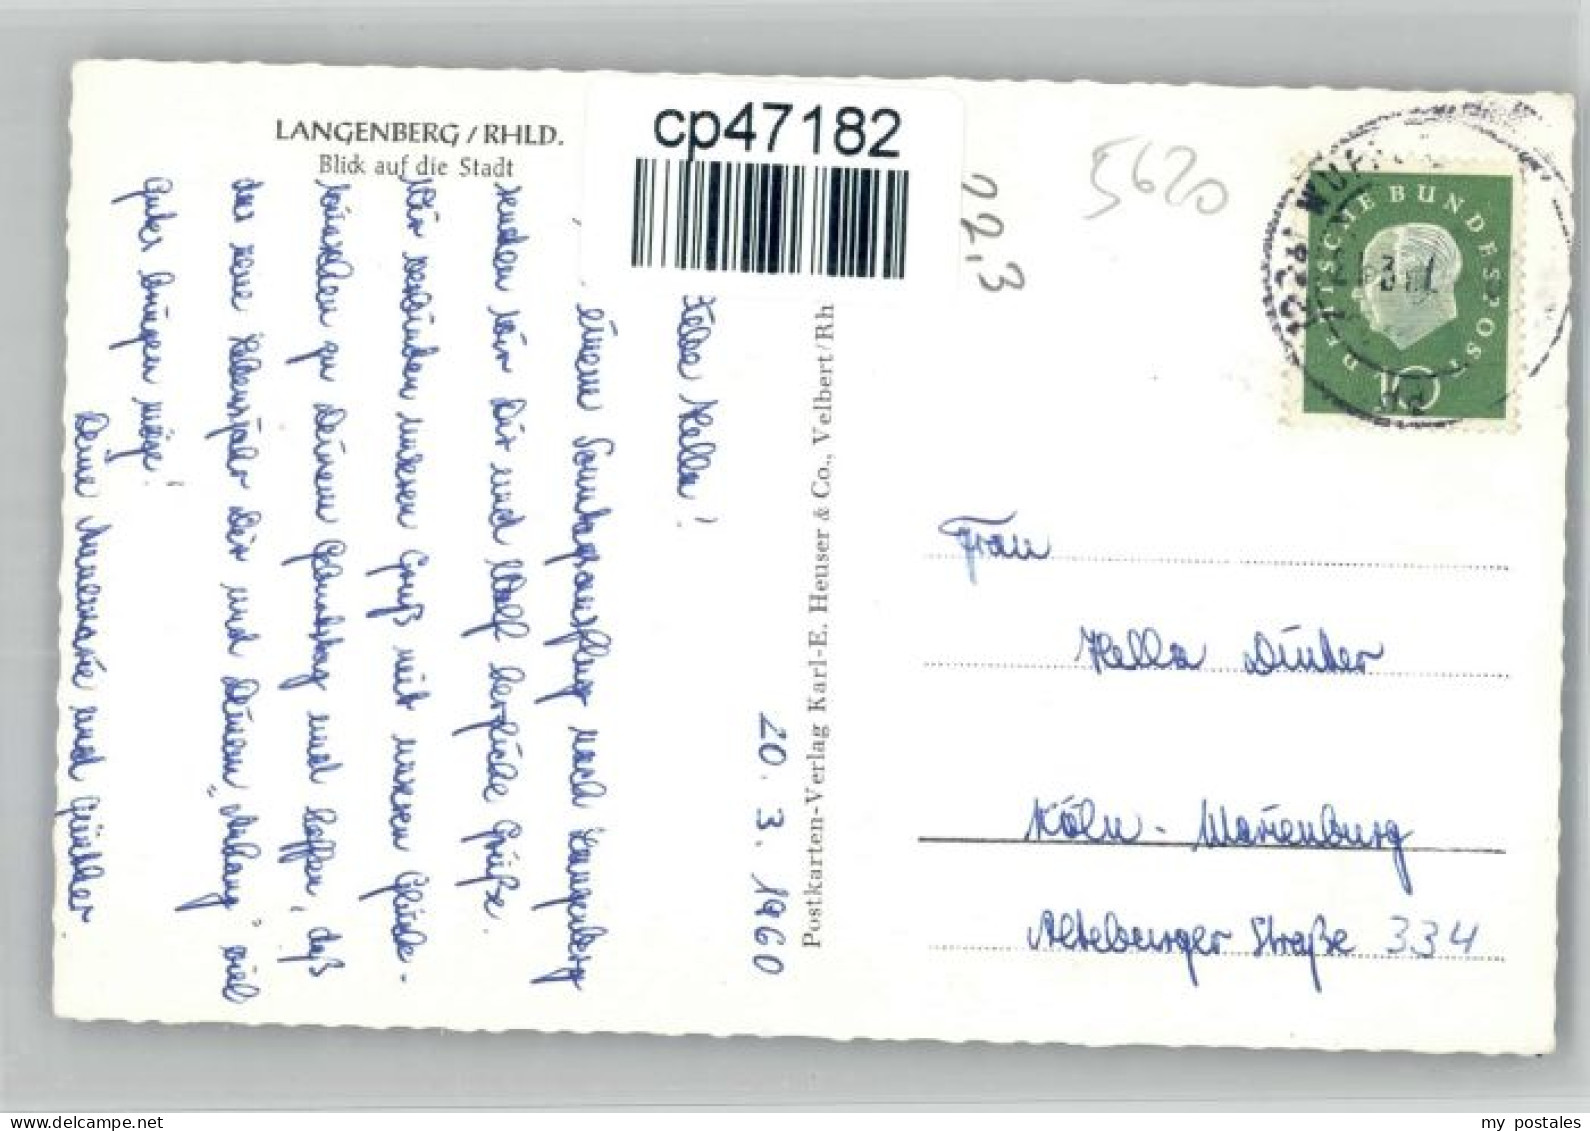 LANGENBERG / RHLD.
Blick auf die Stadt
cp47182
22.3
5620
DEUTSCHE BUNDESPOST
10
20. 3. 1960
Hella!
einem Sonntagsausflug nach Langenberg
senden wir Dir und Wolf herzliche Grüße.
Wir verbinden unseren Gruß mit unseren Glück-
wünschen zu Deinem Geburtstag und hoffen, daß
das neue Lebensjahr Dir und Deinem "Anhang" viel
Gutes bringen möge!
Deine Annemarie und Günther
Postkarten-Verlag Karl-E. Heuser & Co., Velbert/Rh
Frau
Hella Dinter
Köln - Marienburg
Alteburger Straße 334
my postales